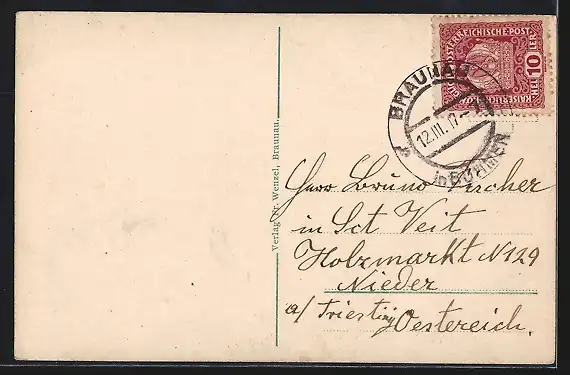 KAISERLICHE KÖNIGLICHE ÖSTERREICHISCHE POST
10
HELLER
BRAUNAU
12.III.17
in BÖHMEN
Verlag Fr. Wenzel, Braunau.
Herr Bruno Fischer
in Sct Veit
Holzmarkt N 129
Nieder
a/ Triesting Oestereich.